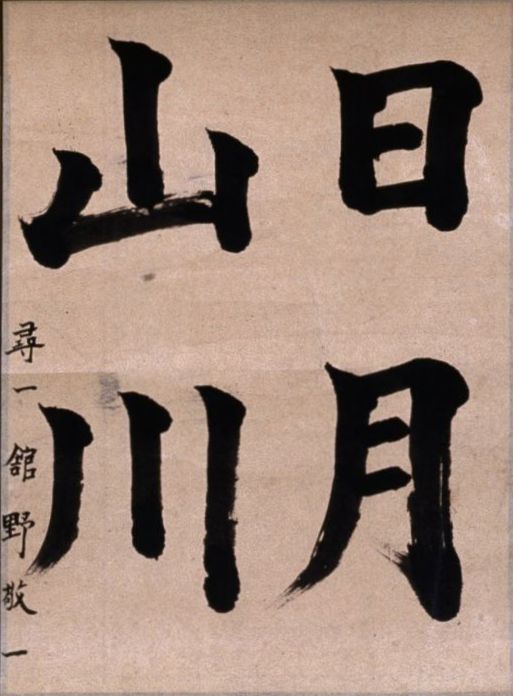 日月
山川
尋一 舘野敬一